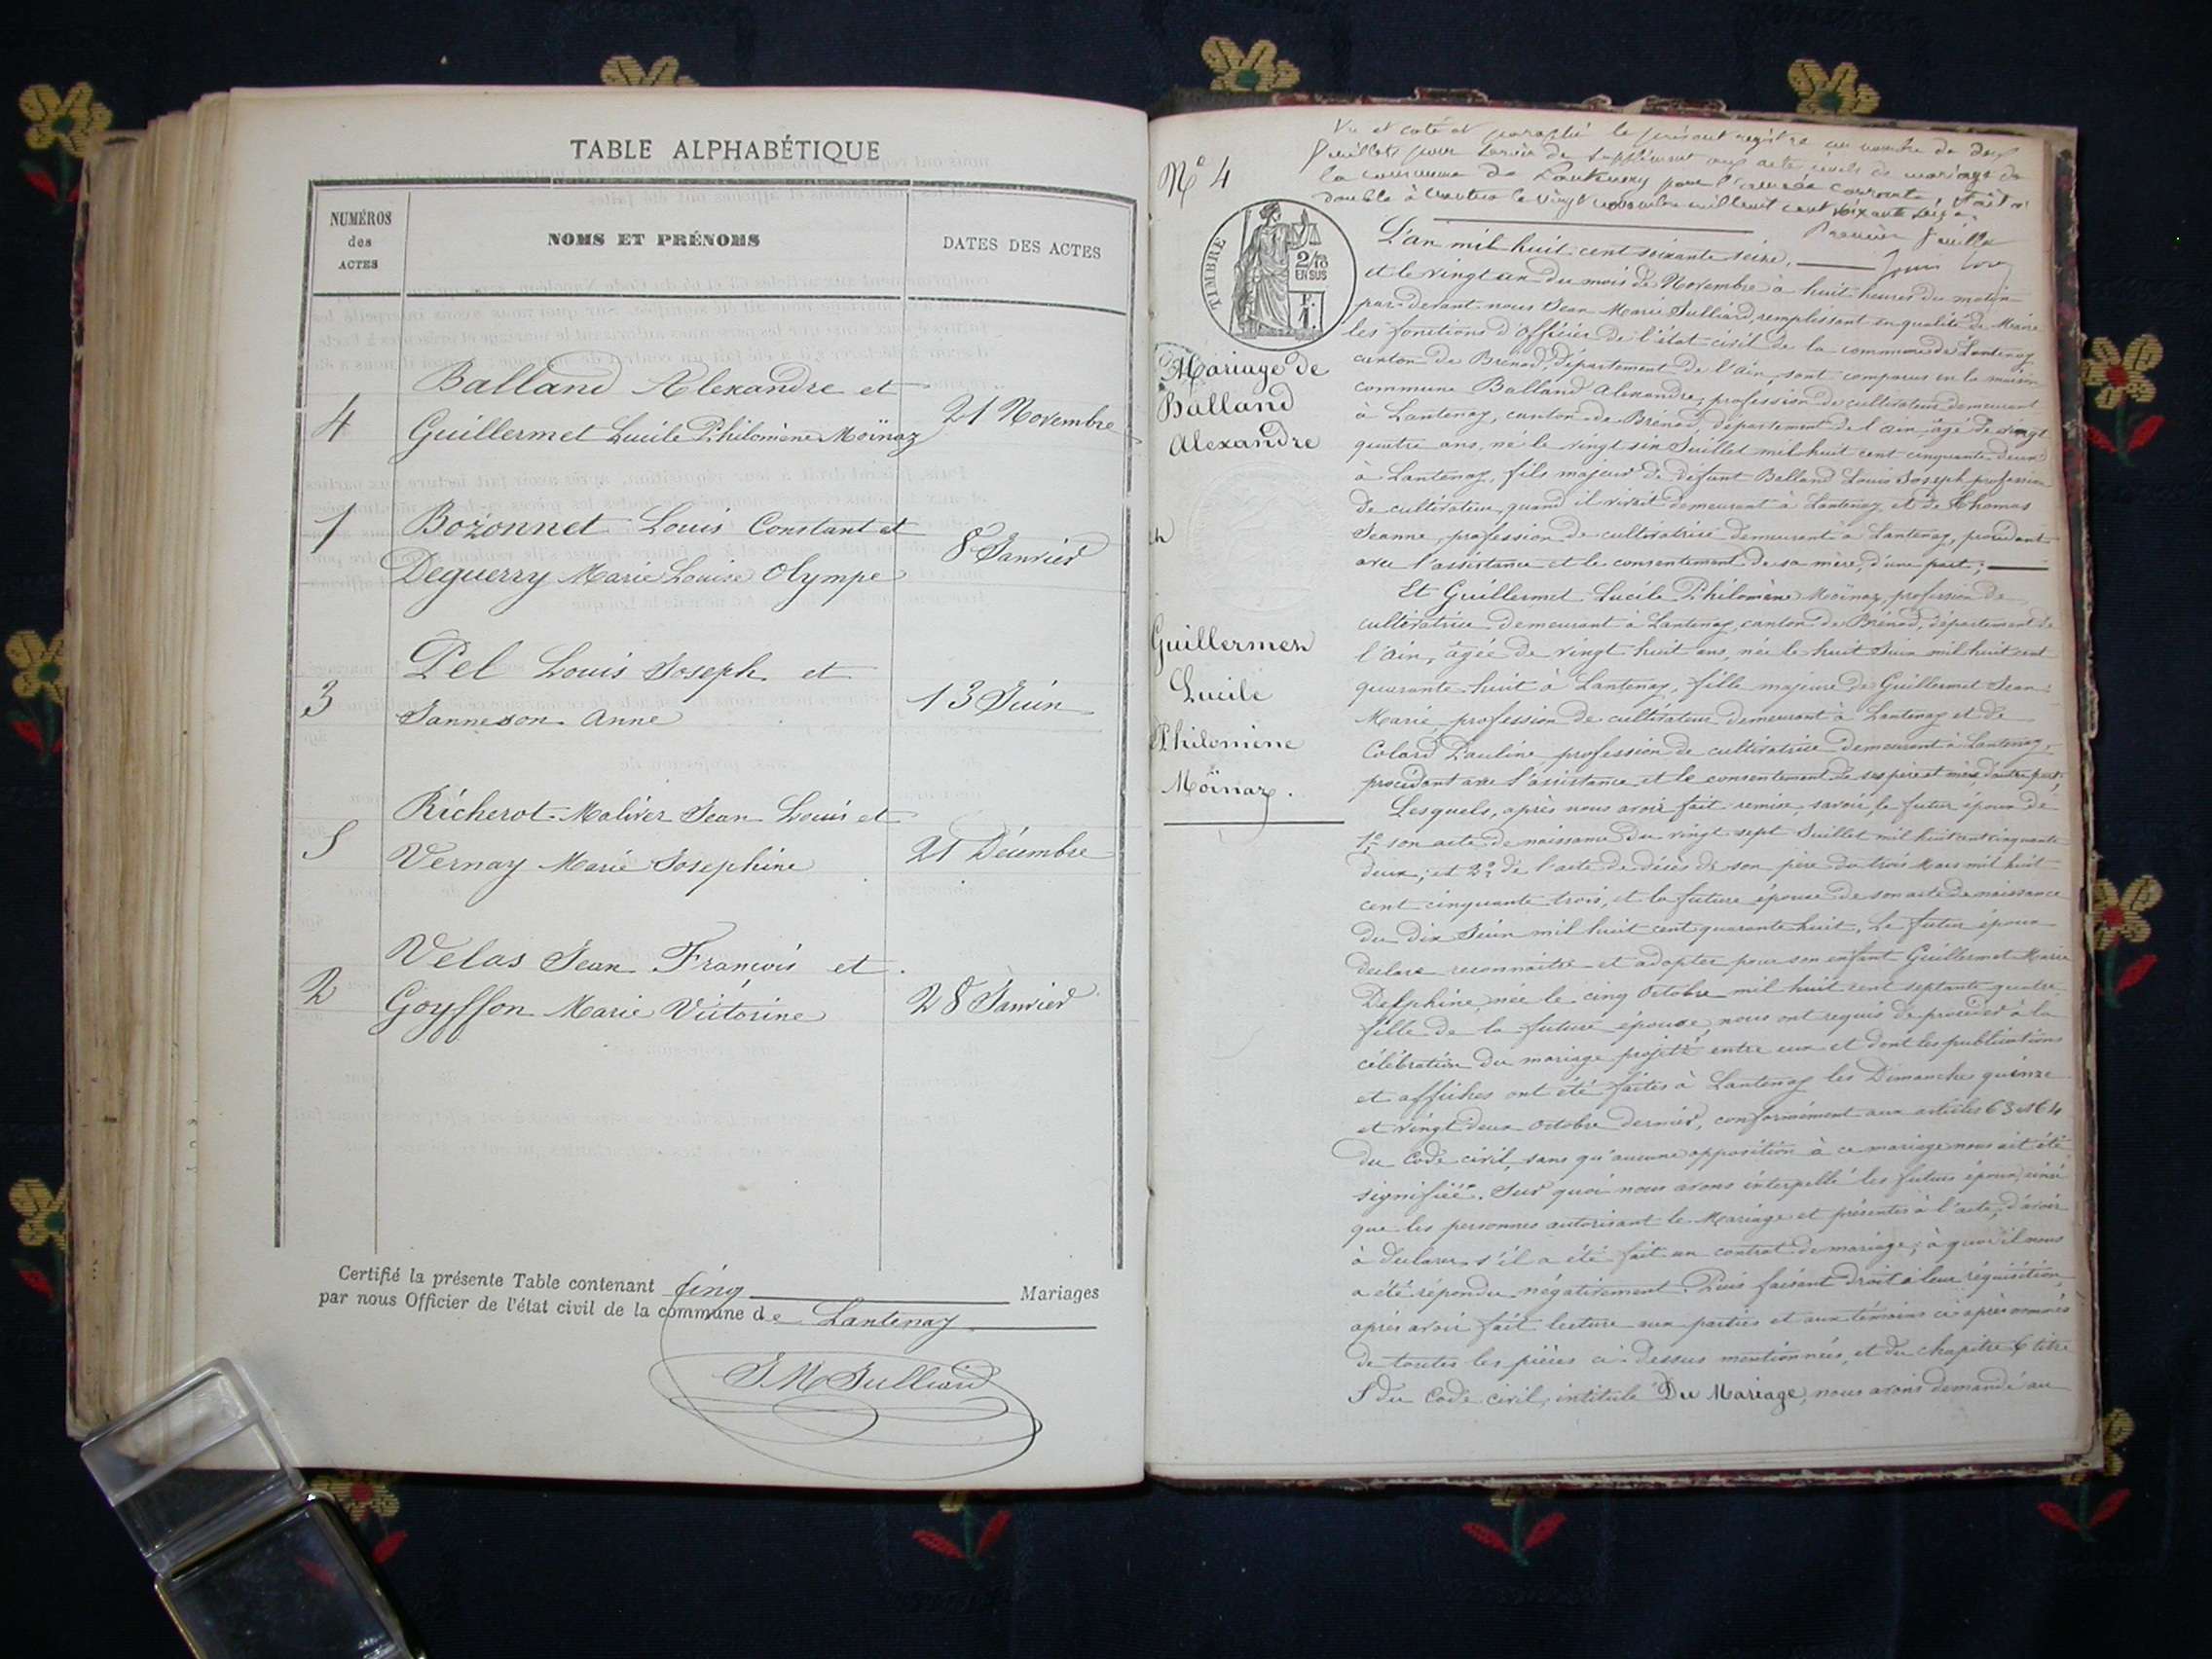 TABLE ALPHABÉTIQUE
NUMÉROS
des
ACTES
NOMS ET PRÉNOMS
DATES DES ACTES
4
Balland Alexandre et
Guillermet Lucile Philomène Moïnaz
21 Novembre
1
Bozonnet Louis Constant et
Deguerry Marie Louise Olympe
8 Janvier
3
Pel Louis Joseph et
Janneson Anne
13 Juin
5
Richerot-Maliver Jean Louis et
Vernay Marie Josephine
21 Décembre
2
Velas Jean François et
Goyffon Marie Victorine
28 Janvier
Certifié la présente Table contenant Cinq Mariages
par nous Officier de l'état civil de la commune de Lantenay
J M Julliard
Vu et coté et paraphé le présent registre au nombre de deux
feuillets pour servir de supplément aux actes civils de mariage de
la commune de Lantenay pour l'année courante, fait
double à le vingt novembre mil huit cent soixante seize
Premier feuillet
N° 4
TIMBRE
2/10
EN SUS
F.
1.
Mariage de
Balland
Alexandre
Guillermet
Lucile
Philomène
Moïnaz.
L'an mil huit cent soixante seize,
et le vingt un du mois de Novembre à huit heures du matin
par-devant nous Jean Marie Julliard, remplissant en qualité de Maire
les fonctions d'Officier de l'état civil de la commune de Lantenay
canton de Brénod, département de l'Ain, sont comparus en la maison
commune Balland Alexandre, profession de cultivateur demeurant
à Lantenay, canton de Brénod, département de l'Ain, âgé de vingt
quatre ans, né le vingt six Juillet mil huit cent cinquante deux
à Lantenay, fils majeur de défunt Balland Louis Joseph profession
de cultivateur, quand il vivait demeurant à Lantenay, et de Thomas
Jeanne, profession de cultivatrice demeurant à Lantenay, procédant
avec l'assistance et le consentement de sa mère, d'une part;
Et Guillermet Lucile Philomène Moïnaz, profession de
cultivatrice demeurant à Lantenay, canton de Brénod, département de
l'Ain, âgée de vingt huit ans, née le huit Juin mil huit cent
quarante huit à Lantenay, fille majeure de Guillermet Jean-
Marie, profession de cultivateur demeurant à Lantenay et de
Colard Pauline profession de cultivatrice demeurant à Lantenay,
procédant avec l'assistance et le consentement de ses père et mère, d'autre part;
Lesquels, après nous avoir fait remise, savoir, le futur époux de
1° son acte de naissance du vingt sept Juillet mil huit cent cinquante
deux; et 2° de l'acte de décès de son père du trois Mars mil huit
cent cinquante trois, et la future épouse de son acte de naissance
du dix Juin mil huit cent quarante huit. Le futur époux
déclare reconnaître et adopter pour son enfant Guillermet Marie
Delphine née le cinq Octobre mil huit cent septante quatre
fille de la future épouse, nous ont requis de procéder à la
célébration du mariage projeté entre eux et dont les publications
et affiches ont été faites à Lantenay les Dimanches quinze
et vingt deux Octobre dernier, conformément aux articles 63 et 64
du Code civil, sans qu'aucune opposition à ce mariage nous ait été
signifiée. Sur quoi nous avons interpellé les futurs époux, ainsi
que les personnes autorisant le Mariage et présentes à l'acte, d'avoir
à déclarer s'il a été fait un contrat de mariage; à quoi il nous
a été répondu négativement. Puis faisant droit à leur réquisition,
après avoir fait lecture aux parties et aux témoins ci-après nommés
de toutes les pièces ci-dessus mentionnées, et du chapitre 6 titre
5 du Code civil, intitulé Du Mariage, nous avons demandé au